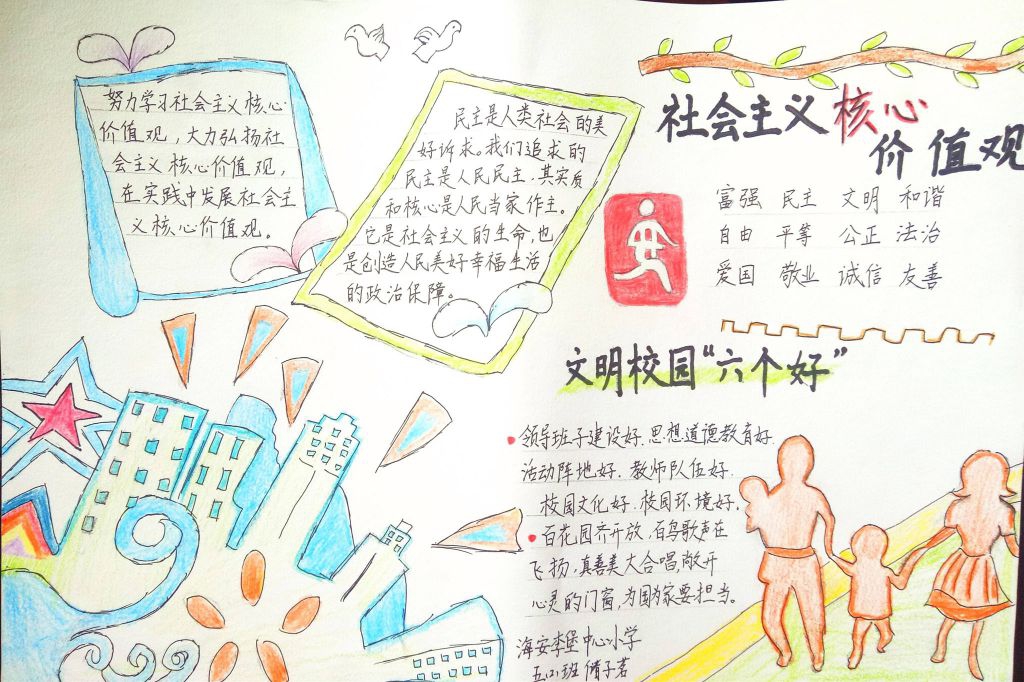 努力学习社会主义核心
价值观，大力弘扬社
会主义核心价值观，
在实践中发展社会主
义核心价值观。
民主是人类社会的美
好诉求。我们追求的
民主是人民民主，其实质
和核心是人民当家作主。
它是社会主义的生命，也
是创造人民美好幸福生活
的政治保障。
社会主义核心
价值观
富强 民主 文明 和谐
自由 平等 公正 法治
爱国 敬业 诚信 友善
文明校园“六个好”
领导班子建设好.思想道德教育好.
活动阵地好.教师队伍好.
校园文化好.校园环境好。
百花园齐开放.百鸟歌声在
飞扬，真善美大合唱敞开
心灵的门窗，为国为家要担当。
海安李堡中心小学